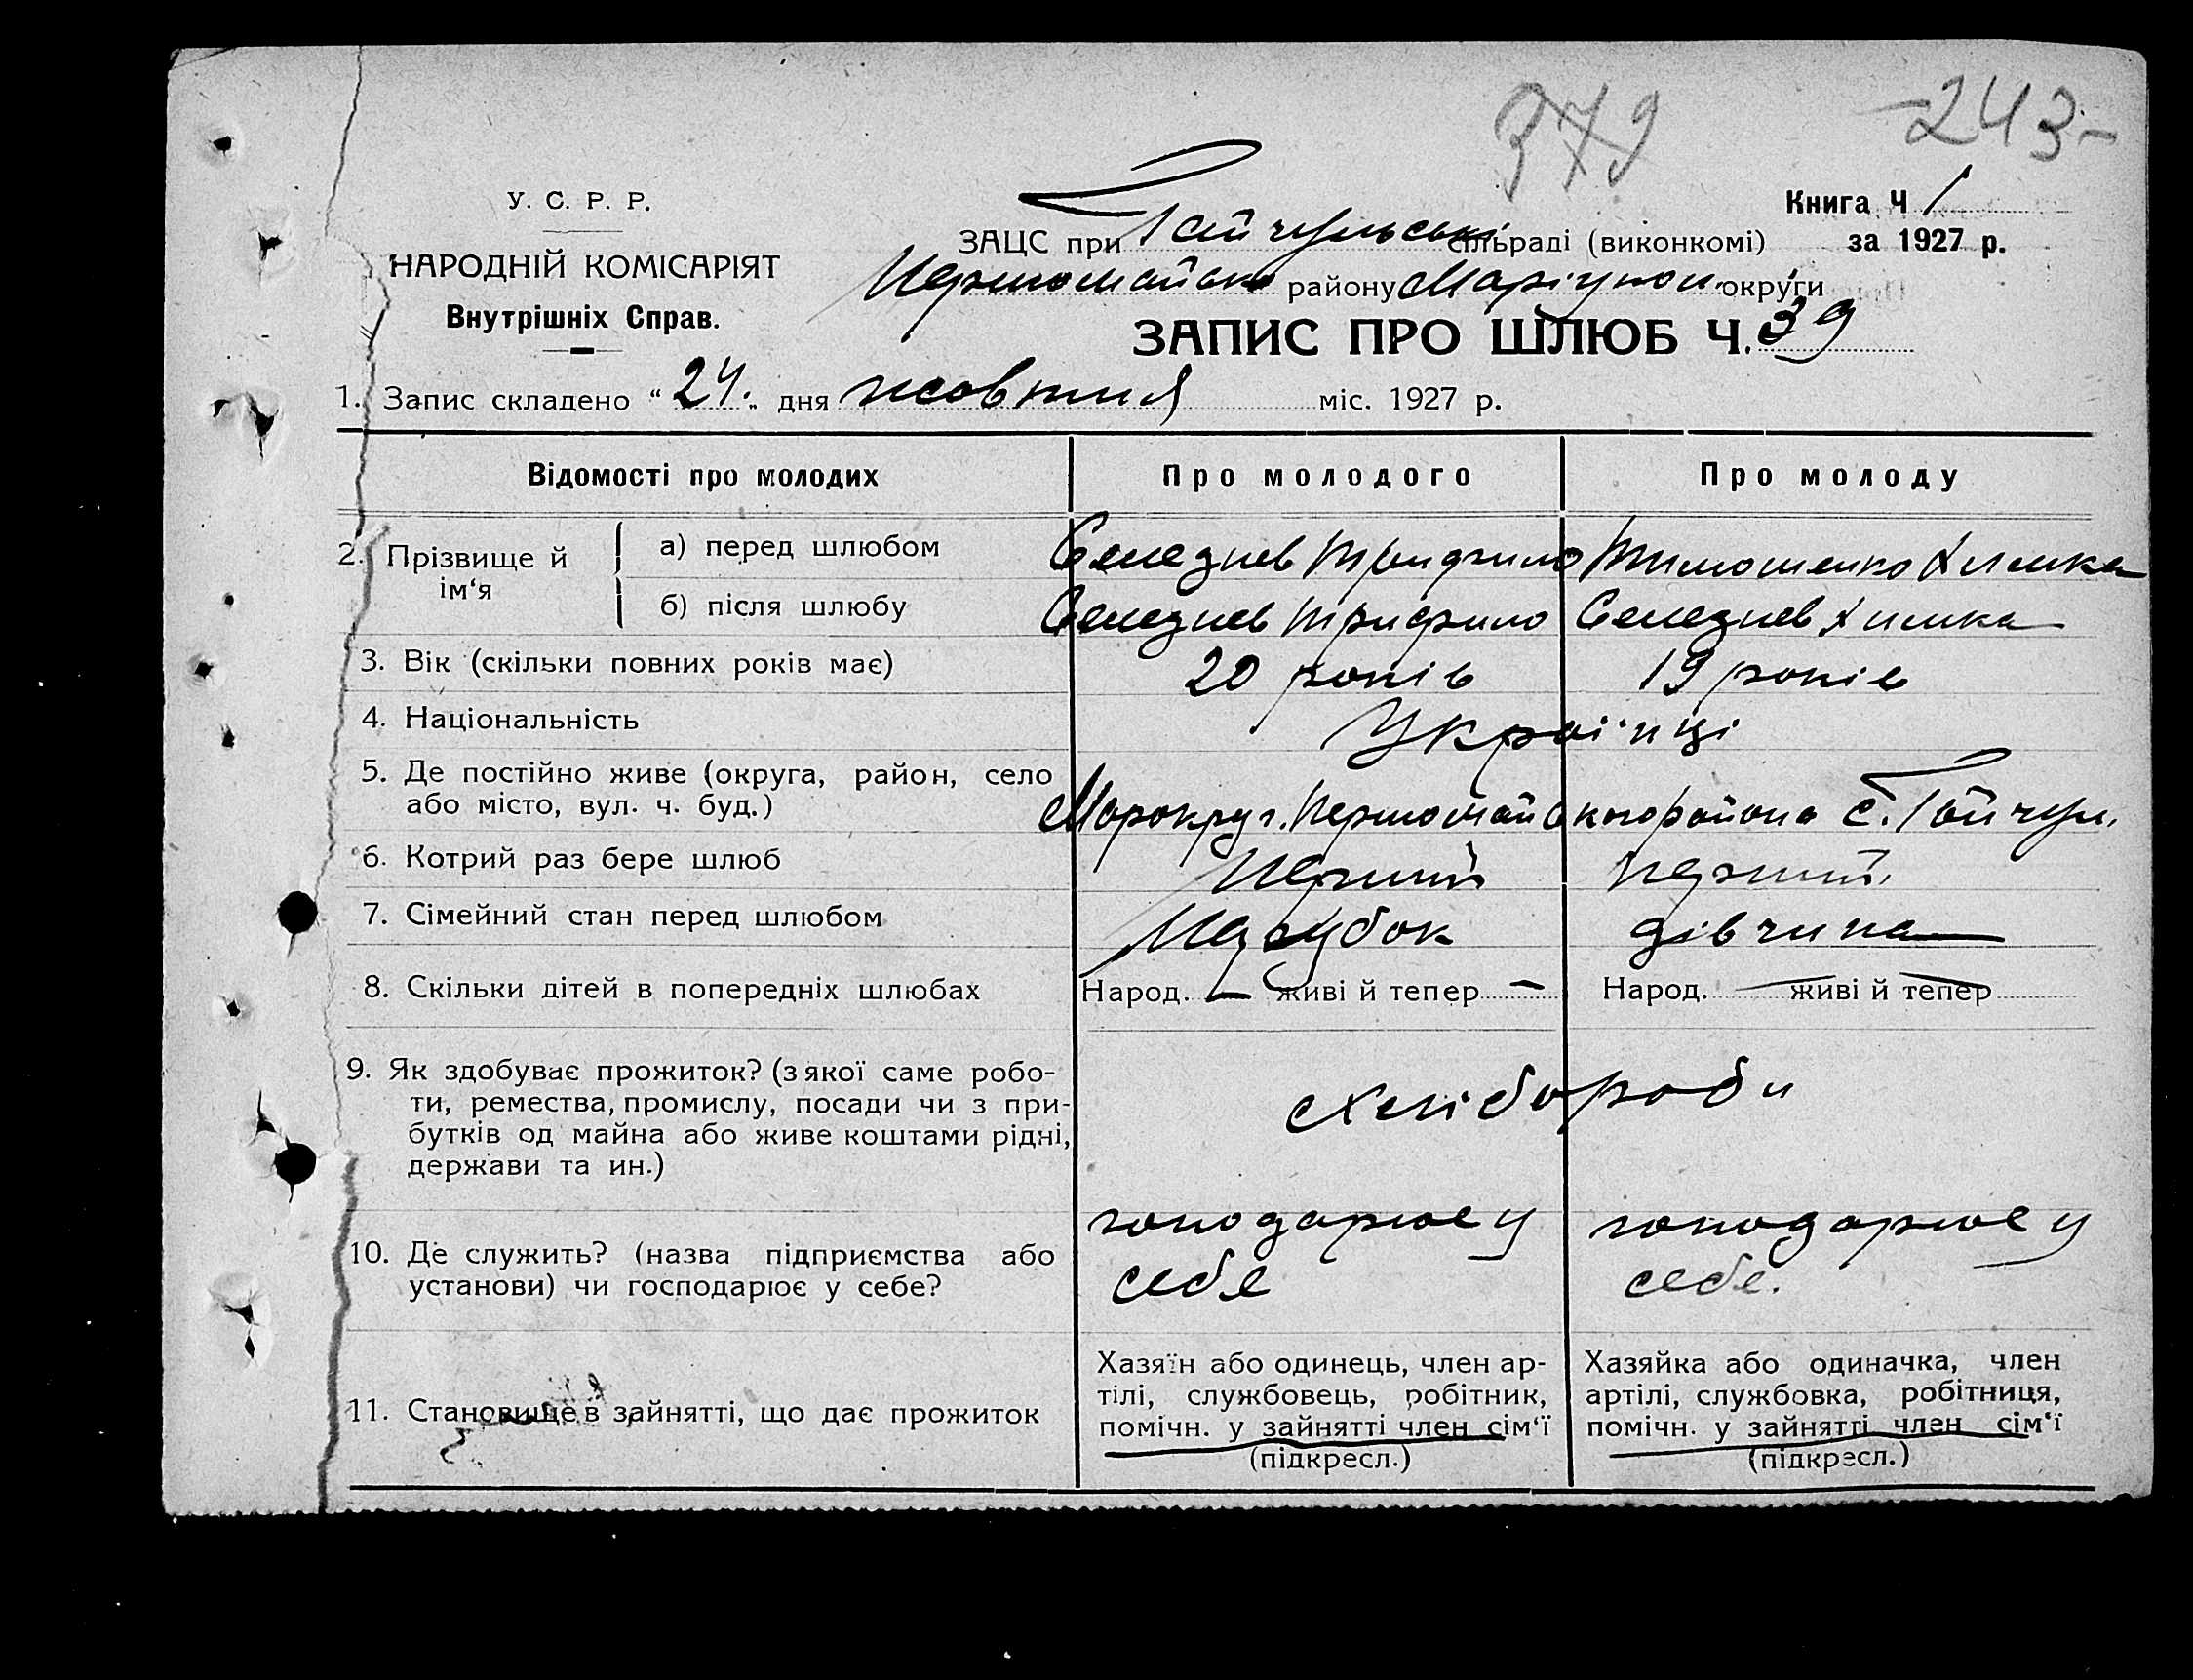 379 -243-
У. С. Р. Р.
НАРОДНІЙ КОМІСАРІЯТ
Внутрішніх Справ.
Книга Ч 1
за 1927 р.
ЗАЦС при Гайчульські сільраді (виконкомі)
Першомайськ району Маріупол. округи
ЗАПИС ПРО ШЛЮБ Ч. 39
1. Запис складено “ 24. „ дня жовтня міс. 1927 р.
Відомості про молодих Про молодого Про молоду
2. Прізвище й ім‘я
а) перед шлюбом Селезнев Трифило Тимошенко Химка
б) після шлюбу Селезнев Трифило Селезнев Химка
3. Вік (скільки повних років має) 20 років 19 років
4. Національність Українці
5. Де постійно живе (округа, район, село
або місто, вул. ч. буд.) Марокруг. Першомайського района с. Гайчул.
6. Котрий раз бере шлюб Перший перший
7. Сімейний стан перед шлюбом Парубок дівчина
8. Скільки дітей в попередніх шлюбах Народ. — живі й тепер — Народ. — живі й тепер —
9. Як здобуває прожиток? (з якої саме робо-
ти, ремества, промислу, посади чи з при-
бутків од майна або живе коштами рідні,
держави та ин.)
хлібороби
10. Де служить? (назва підприємства або
установи) чи господарює у себе?
господарює у
себе
господарює у
себе.
11. Становище в зайнятті, що дає прожиток
Хазяїн або одинець, член ар-
тілі, службовець, робітник,
помічн. у зайнятті член сім‘ї
(підкресл.)
Хазяйка або одиначка, член
артілі, службовка, робітниця,
помічн. у зайнятті член сім‘ї
(підкресл.)